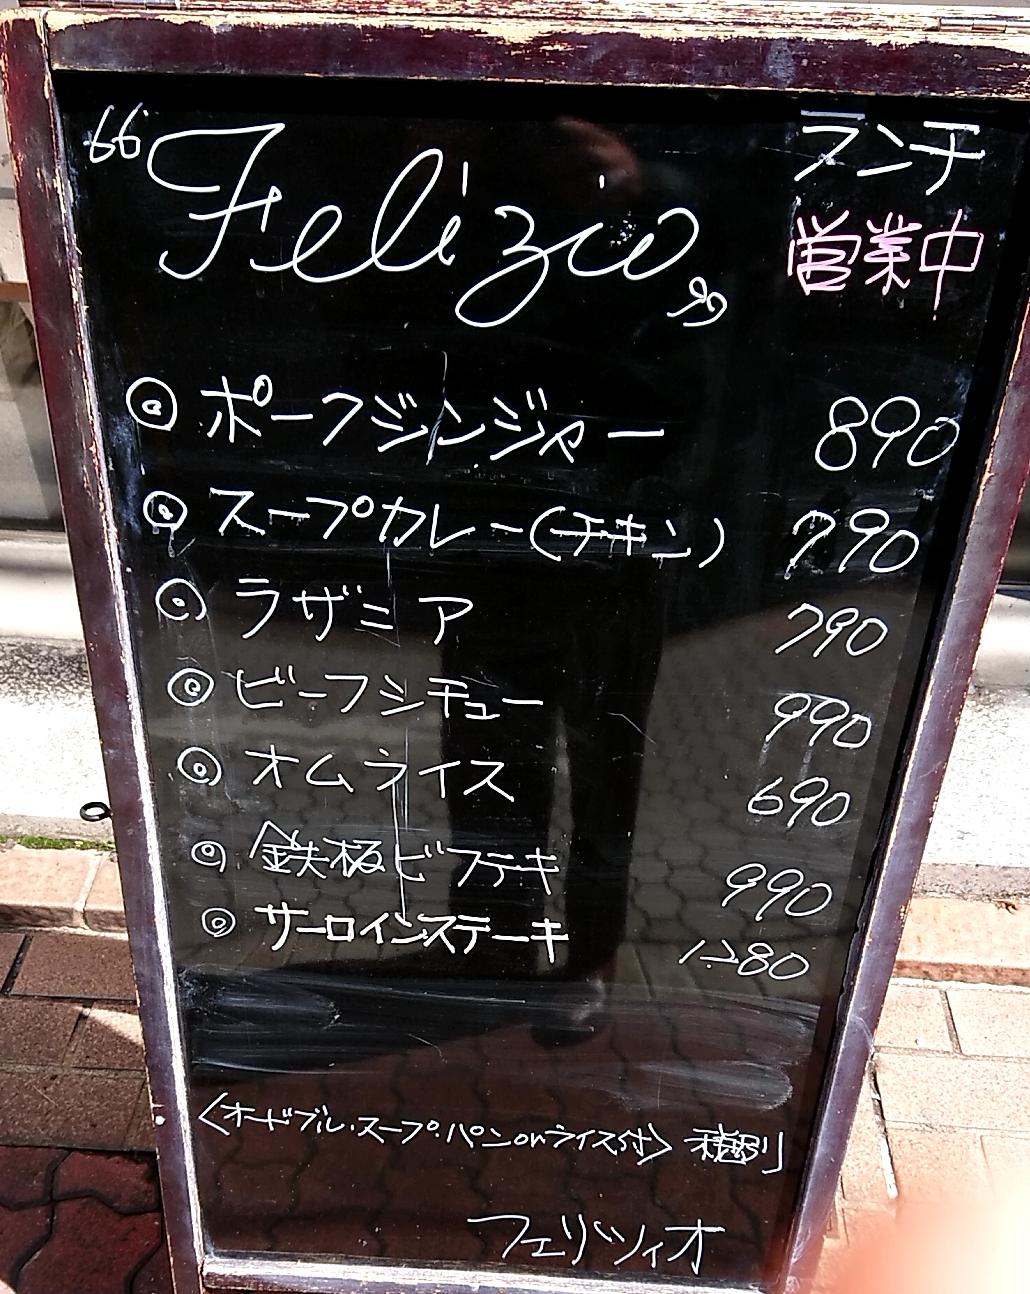 “Felizio”
ランチ
営業中
◎ポークジンジャー 890
◎スープカレー(チキン) 790
◎ラザニア 790
◎ビーフシチュー 990
◎オムライス 690
◎鉄板ビフテキ 990
◎サーロインステーキ 1280
〈オードブル・スープ・パンorライス付〉税別
フェリツィオ